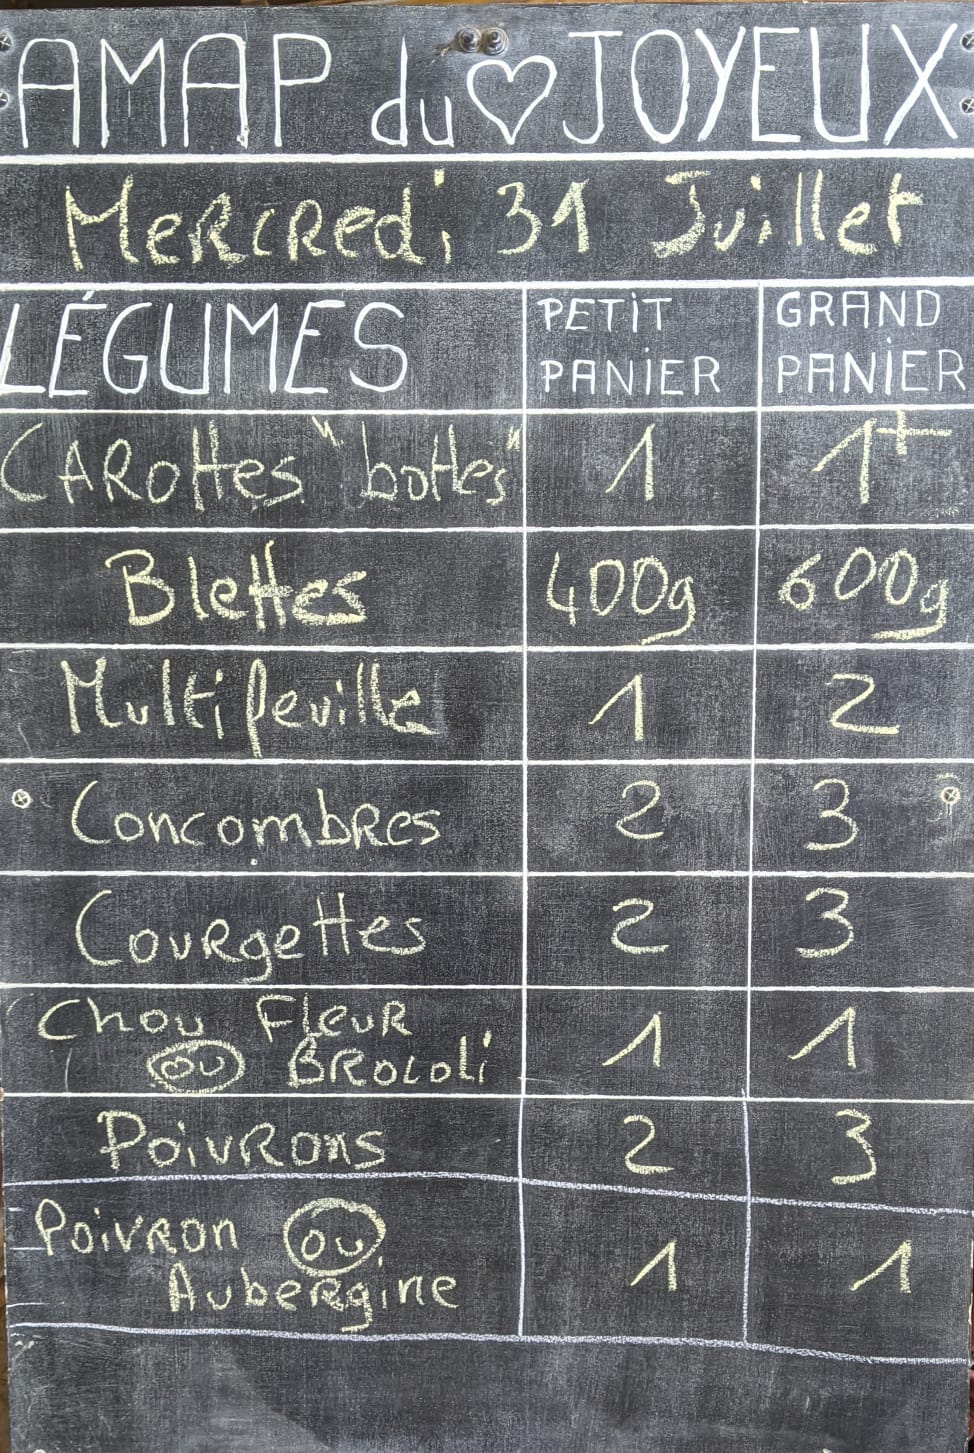 AMAP du ♡ JOYEUX
Mercredi 31 Juillet
LÉGUMES PETIT PANIER GRAND PANIER
CAROttes "bottes" 1 1+
Blettes 400g 600g
Multifeuille 1 2
Concombres 2 3
Courgettes 2 3
Chou Fleur
ou Brocoli 1 1
Poivrons 2 3
Poivron ou
Aubergine 1 1